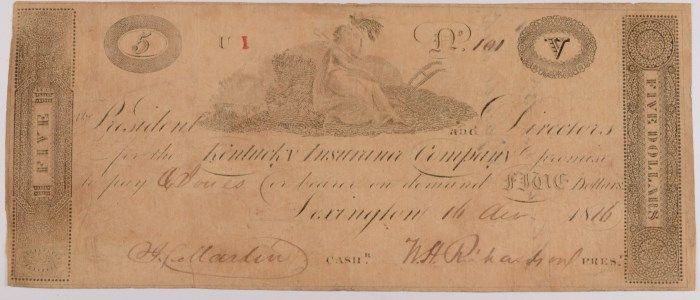 5 U I No. 101 V
FIVE
The President and Directors
for the Kentucky Insurance Company promise
to pay or bearer on demand FIVE Dollars
Lexington 16 1816
Martin CASHR. W.H. Richardson PREST.
FIVE DOLLARS